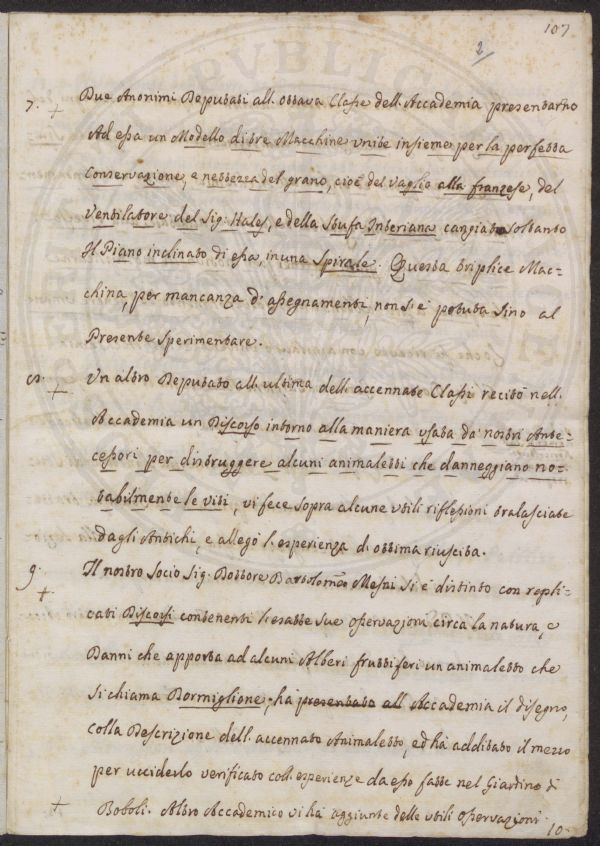 107
2
7. + Due Anonimi Deputati all'ottava Classe dell'Accademia presentarno
Ad essa un Modello di tre Macchine unite insieme per la perfetta
Conservazione, e nettezza del grano, cioè del vaglio alla franzese, del
Ventilatore del Sig: Hales, e della Stufa Interiana cangiato soltanto
Il Piano inclinato di essa, in una Spirale. Questa triplice Mac=
china, per mancanza d'assegnamenti, non si è potuta sino al
Presente sperimentare.
8. + Un altro Deputato all'ultima dell'accennate Classi recitò nell'
Accademia un Discorso intorno alla maniera usata da' nostri Ante=
cessori per distruggere alcuni animaletti che danneggiano no=
tabilmente le viti, vi fece sopra alcune utili riflessioni tralasciate
dagli Antichi, e allegò l'esperienza di ottima riuscita.
9. + Il nostro Socio Sig. Dottore Bartolomeo Mesni si è distinto con repli=
cati Discorsi contenenti l'esatte sue osservazioni circa la natura, e
Danni che apporta ad alcuni Alberi fruttiferi un animaletto che
si chiama Dormiglione, ha presentato all'Accademia il disegno,
colla Descrizione dell'accennato Animaletto, ed ha additato il mezzo
per ucciderlo verificato coll'esperienze da esso fatte nel Giardino di
+ Boboli. Altro Accademico vi ha aggiunte delle utili osservazioni.
10.